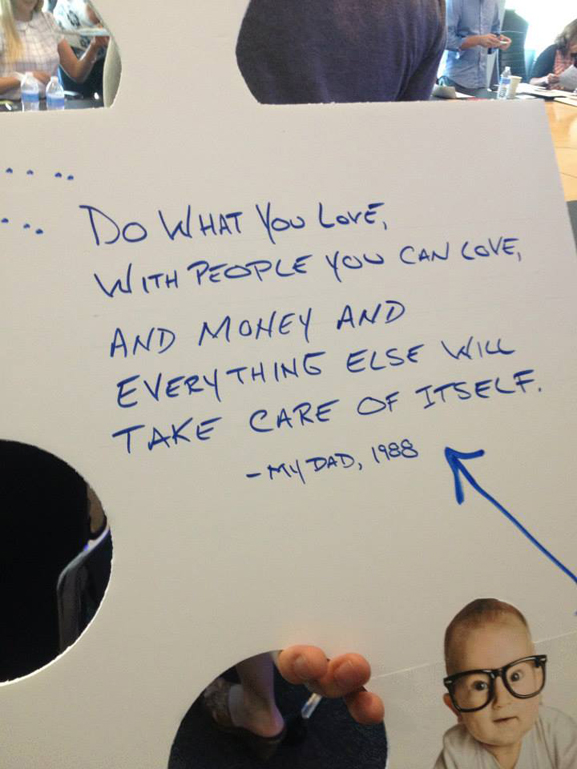 Do What You Love,
With People You Can Love,
And Money And
Everything Else Will
Take Care Of Itself.
- My Dad, 1988